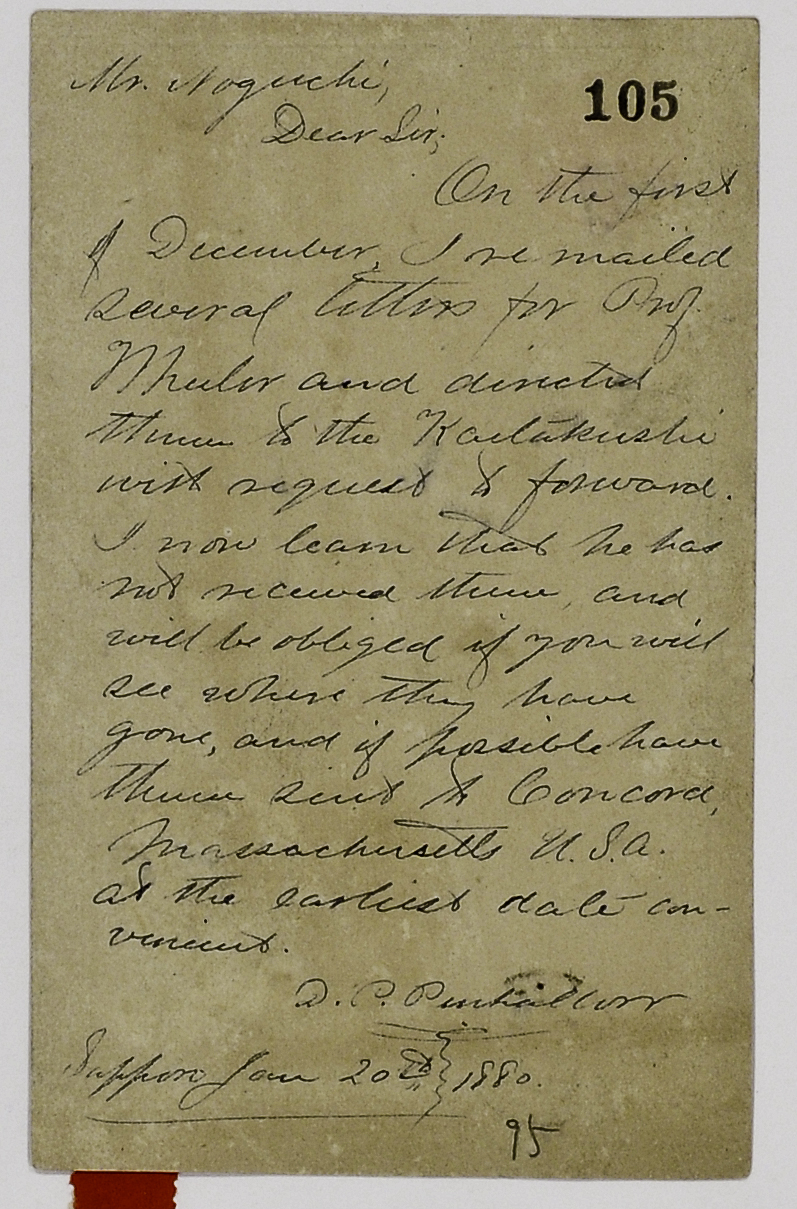 Mr. Noguchi,
105
Dear Sir;
On the first
of December, I re mailed
several letters for Prof.
Wheeler and directed
them to the Kaitakushi
with request to forward.
I now learn that he has
not received them, and
will be obliged if you will
see where they have
gone, and if possible have
them sent to Concord,
Massachusetts U.S.A.
at the earliest date con-
venient.
D. P. Penhallow
Sapporo Jan 20th 1880.
95